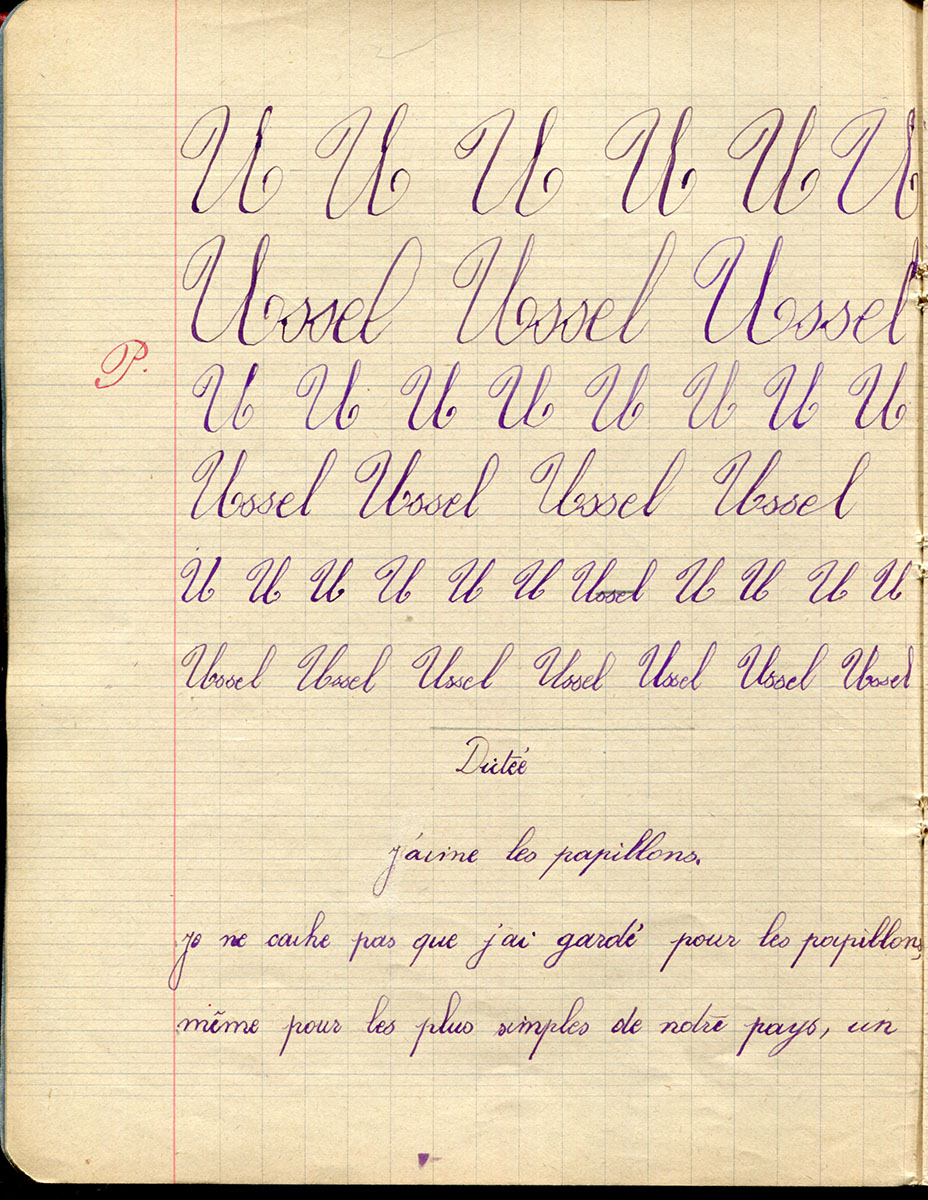 U U U U U U
Ussel Ussel Ussel
P.
U U U U U U U U
Ussel Ussel Ussel Ussel
U U U U U U Ussel U U U U
Ussel Ussel Ussel Ussel Ussel Ussel Ussel
Dictée
j'aime les papillons.
je ne cache pas que j'ai gardé pour les papillons,
même pour les plus simples de notre pays, un